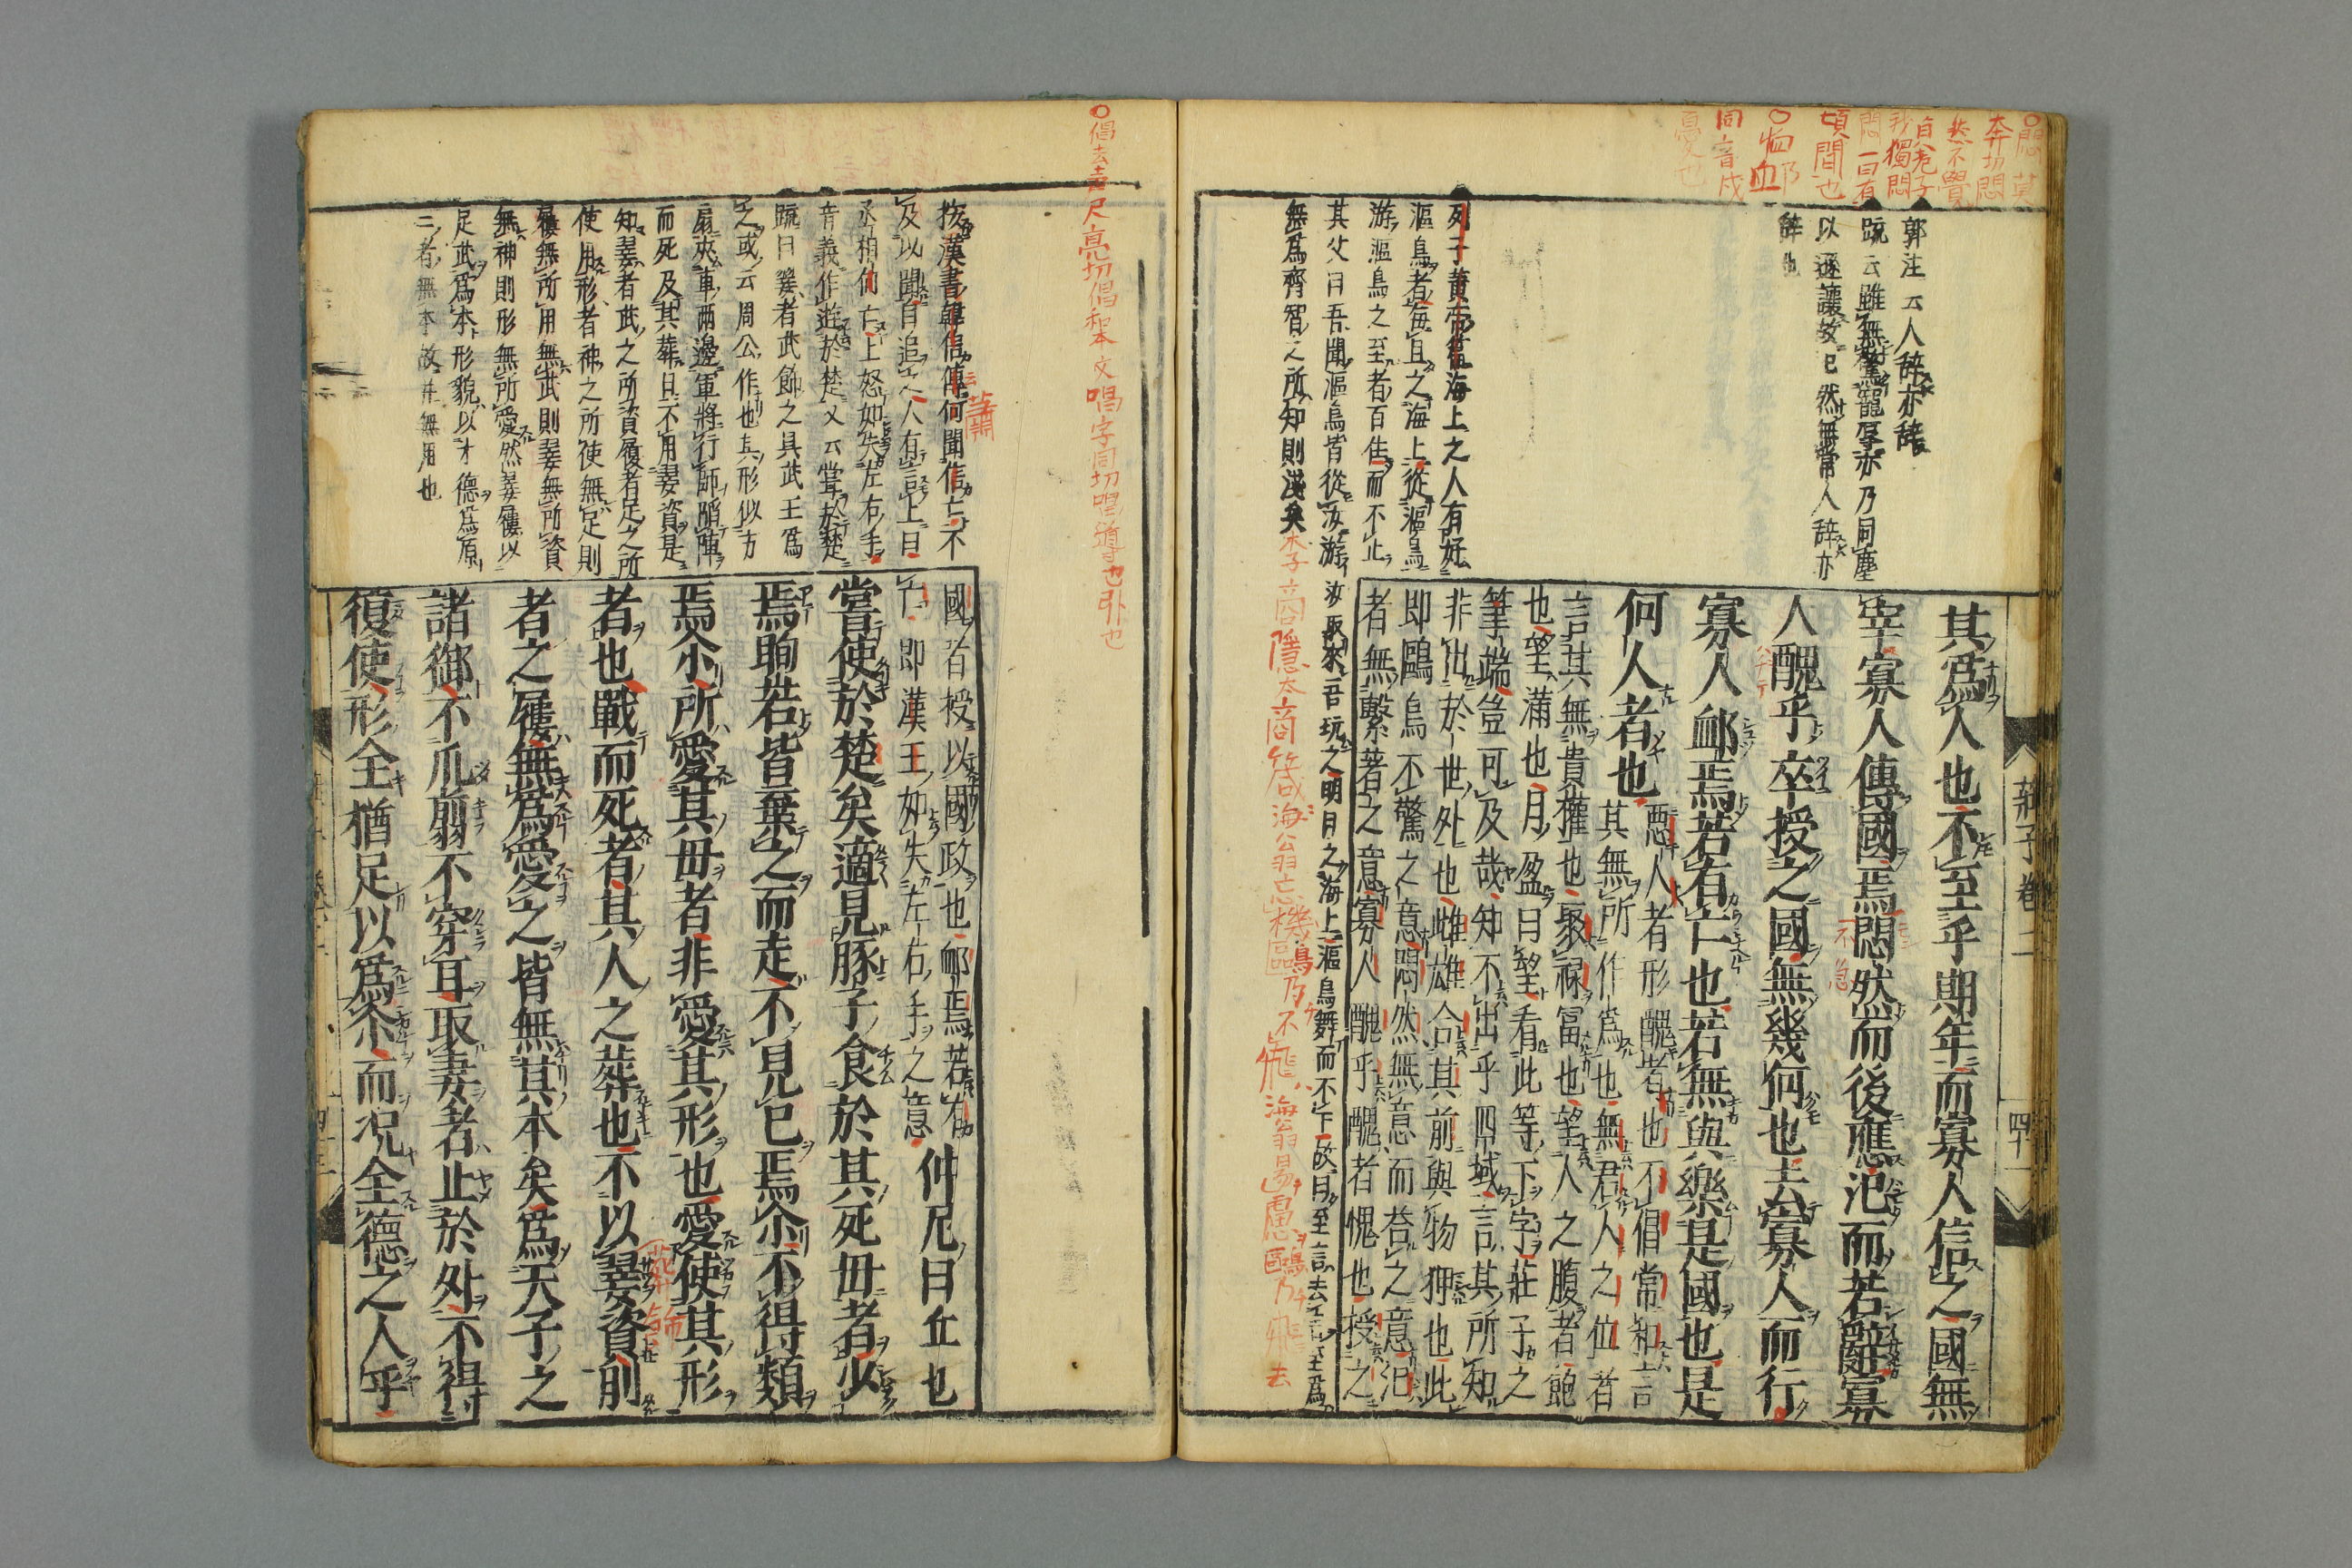 其爲人也不至乎期年而寡人信之國無
宰寡人傳國焉悶然而後應氾而若辭寡
人醜乎卒授之國無幾何也去寡人而行
寡人卹焉若有亡也若無與樂是國也是
何人者也
惡人者形醜者也不倡常和言
其無所作爲也無君人之位者
言其無貴權也聚祿冨也望人之腹者飽
也望滿也月盈曰望看此等下字莊子之
筆端豈可及哉知不出乎四域言其所知
非出於世外也雌雄合其前與物狎也此
即鷗鳥不驚之意悶然無意而荅之意氾
者無繫著之意寡人醜乎醜者愧也授之
郭注云人辭亦辭
疏云雖無驚寵辱亦乃同塵
以遜讓故已然無當人辭亦
辭也
列子黄帝篇海上之人有好
漚鳥者每旦之海上從漚鳥
游漚鳥之至者百住而不止
其父曰吾聞漚鳥皆從汝游汝取來吾玩之明日之海上漚鳥舞而不下故曰至言去言至爲
無爲齊智之所知則淺矣
李商隱太商筬海翁忘機鷗乃不飛海翁易慮鷗乃飛去
〇悶莫
奔切悶
然不覺
皃老子
我獨悶
悶一曰有
頃間也
〇卹
血
同音戌
憂也
莊子卷二
四十一
〇倡去聲尺亮切倡和本文唱字同切唱導也引也
國者授以國政也卹焉若有
亡即漢王如失左右手之意
仲尼曰丘也
嘗使於楚矣適見㹠子食於其死母者少
焉眴若皆棄之而走不見已焉尒不得類
焉尒所愛其母者非愛其形也愛使其形
者也戰而死者其人之葬也不以翣資刖
者之屨無爲愛之皆無其本矣爲天子之
諸御不爪翦不穿耳取妻者止於外不得
復使形全猶足以爲尒而况全德之人乎
按漢書韓信傳何聞信亡不
及以聞自追之人有言上曰
丞相何亡上怒如失左右手
音義作遊於楚又云嘗於楚
疏曰翣者武飾之具武王爲
之或云周公作也其形似方
扇夾車兩邊軍將行師陷陣
而死及其葬日不用翣資是
知翣者武之所資屨者足之所
使用形者神之所使無足則
屨無所用無武則翣無所資
無神則形無所愛然翣屨以
足武爲本形貌以才德爲原
二者無本故并無用也
蕭